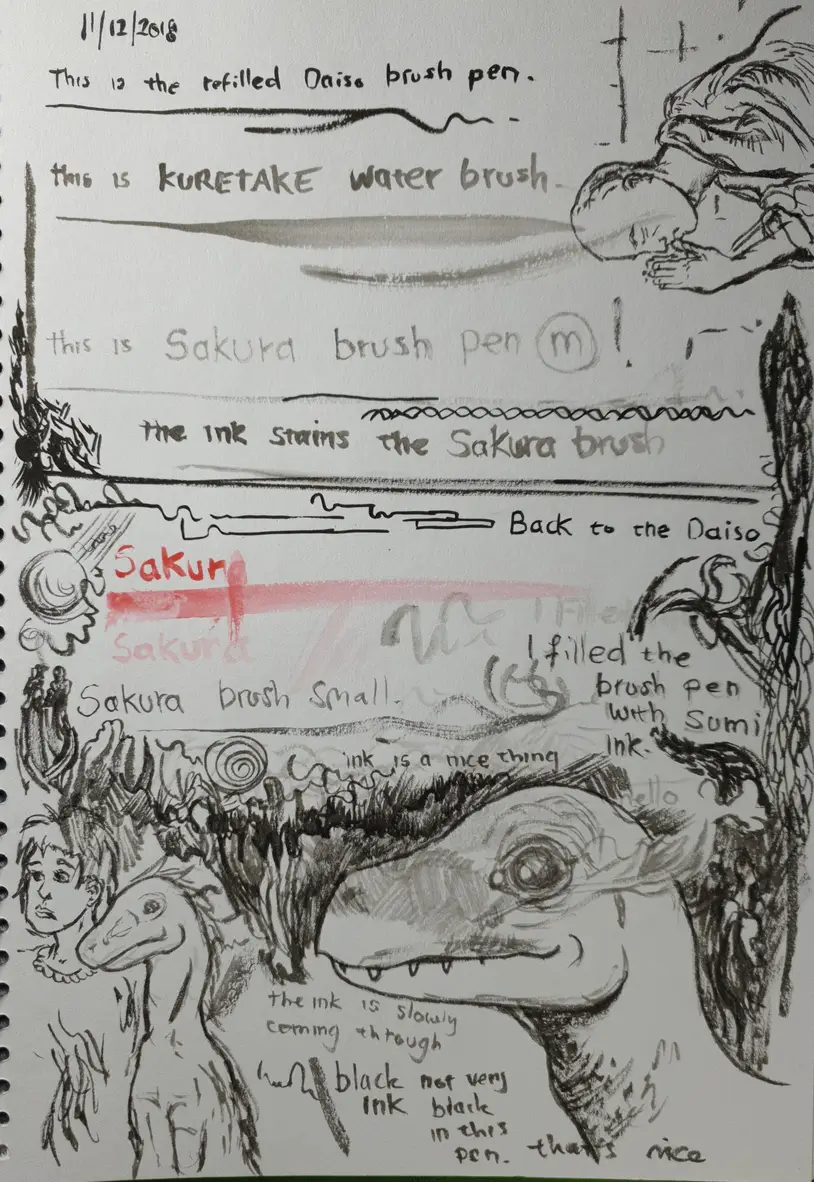 11/12/2018
This is the refilled Daiso brush pen.
this is KURETAKE water brush.
this is Sakura brush pen m !
the ink stains the Sakura brush
Back to the Daiso
Sakura
Sakura
I Filled
I filled the
brush pen
with Sumi
ink.
Sakura brush small.
ink is a nice thing
hello
the ink is slowly
coming through
black not very
ink black
in this
pen. that's nice